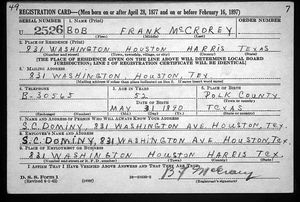 49
7
REGISTRATION CARD—(Men born on or after April 28, 1877 and on or before February 16, 1897)
SERIAL NUMBER 1. NAME (Print) ORDER NUMBER
U 2526 BOB FRANK MCCROREY
2. PLACE OF RESIDENCE (Print)
931 WASHINGTON HOUSTON HARRIS TEXAS
[THE PLACE OF RESIDENCE GIVEN ON THE LINE ABOVE WILL DETERMINE LOCAL BOARD
JURISDICTION; LINE 2 OF REGISTRATION CERTIFICATE WILL BE IDENTICAL]
3. MAILING ADDRESS
931 WASHINGTON HOUSTON, TEX.
[Mailing address if other than place indicated on line 2. If same insert word same]
4. TELEPHONE 5. AGE IN YEARS 6. PLACE OF BIRTH
B-30565 52 POLK COUNTY
DATE OF BIRTH
MAY 31 1890 TEXAS
7. NAME AND ADDRESS OF PERSON WHO WILL ALWAYS KNOW YOUR ADDRESS
S.C. DOMINY, 931 WASHINGTON AVE. HOUSTON, TEX.
8. EMPLOYER'S NAME AND ADDRESS
S.C. DOMINY, 931 WASHINGTON AVE HOUSTON, TEX.
9. PLACE OF EMPLOYMENT OR BUSINESS
931 WASHINGTON HOUSTON HARRIS TEX.
I AFFIRM THAT I HAVE VERIFIED ABOVE ANSWERS AND THAT THEY ARE TRUE.
D. S. S. Form 1